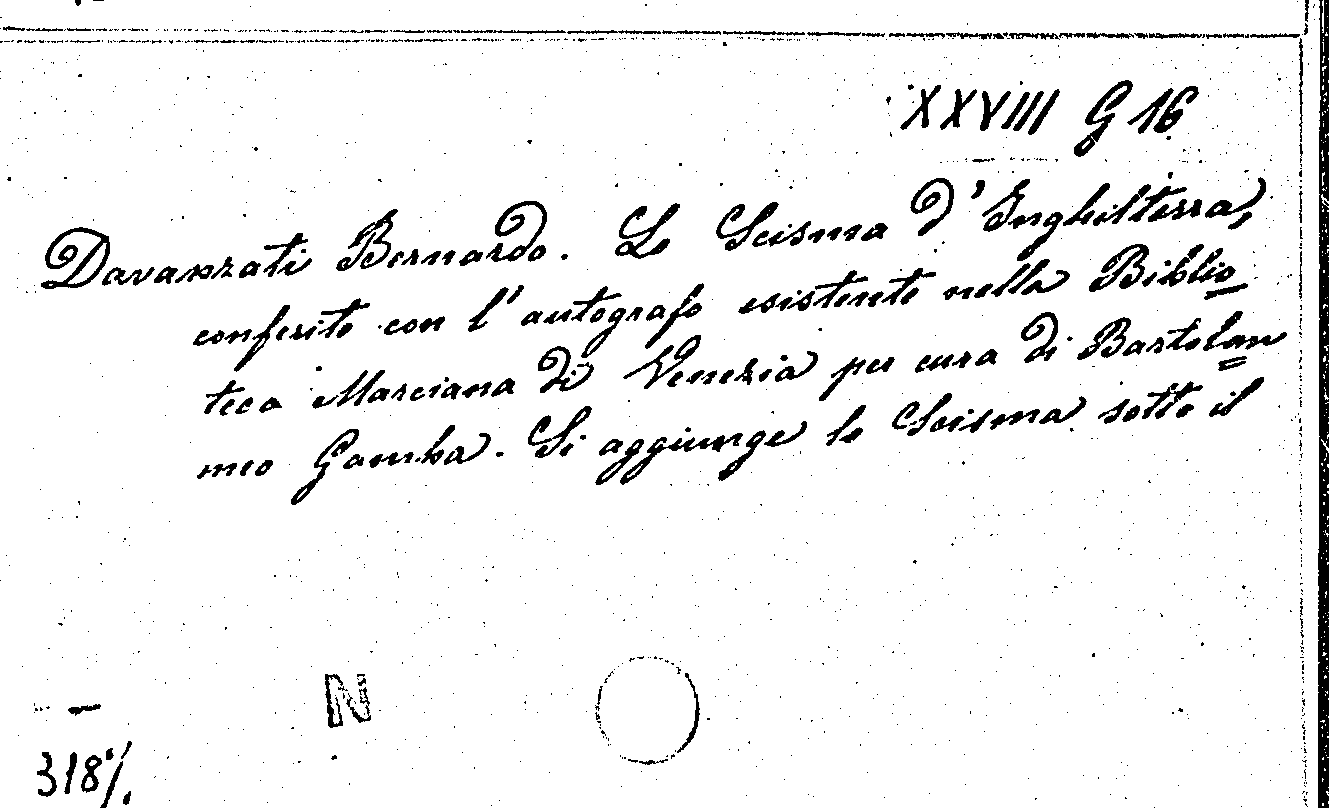 XXVIII G 16
Davanzati Bernardo. Lo Scisma d'Inghilterra,
conferito con l'autografo esistente nella Biblio
teca Marciana di Venezia per cura di Bartolam
meo Gamba. Si aggiunge lo Scisma sotto il
N
318%.